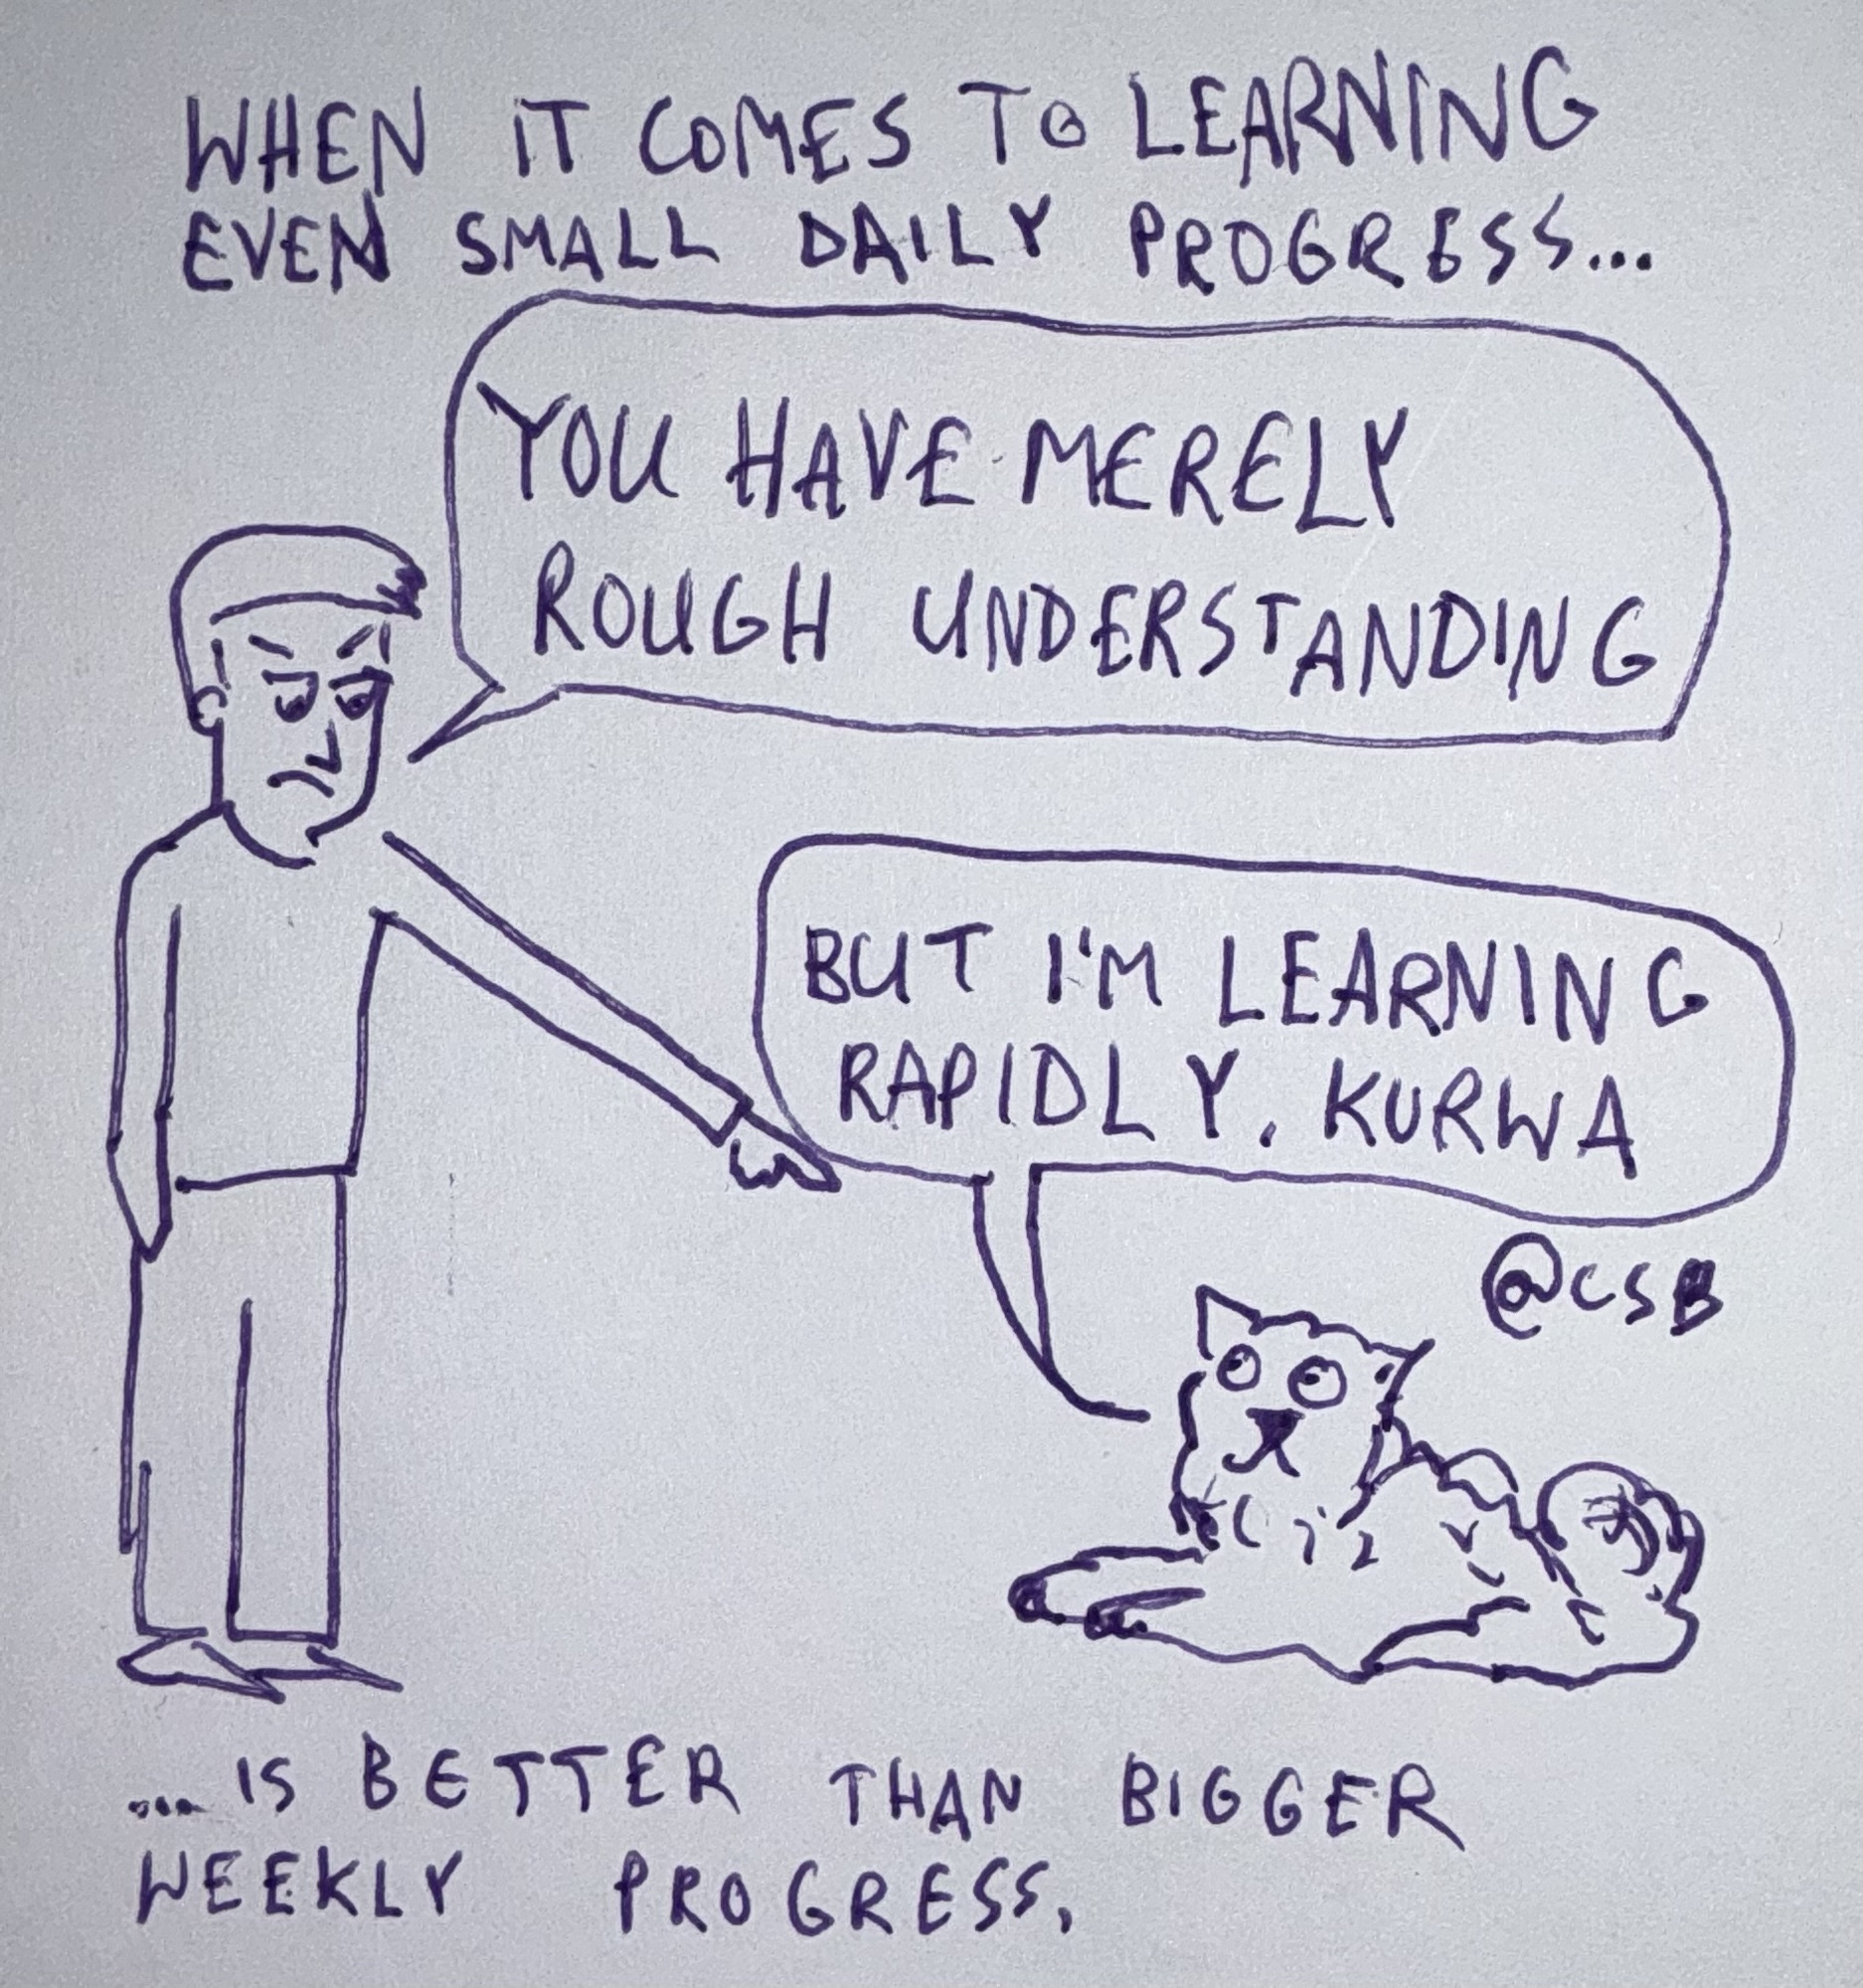 WHEN IT COMES TO LEARNING
EVEN SMALL DAILY PROGRESS...
YOU HAVE MERELY
ROUGH UNDERSTANDING
BUT I'M LEARNING
RAPIDLY. KURWA
@CSB
... IS BETTER THAN BIGGER
WEEKLY PROGRESS.